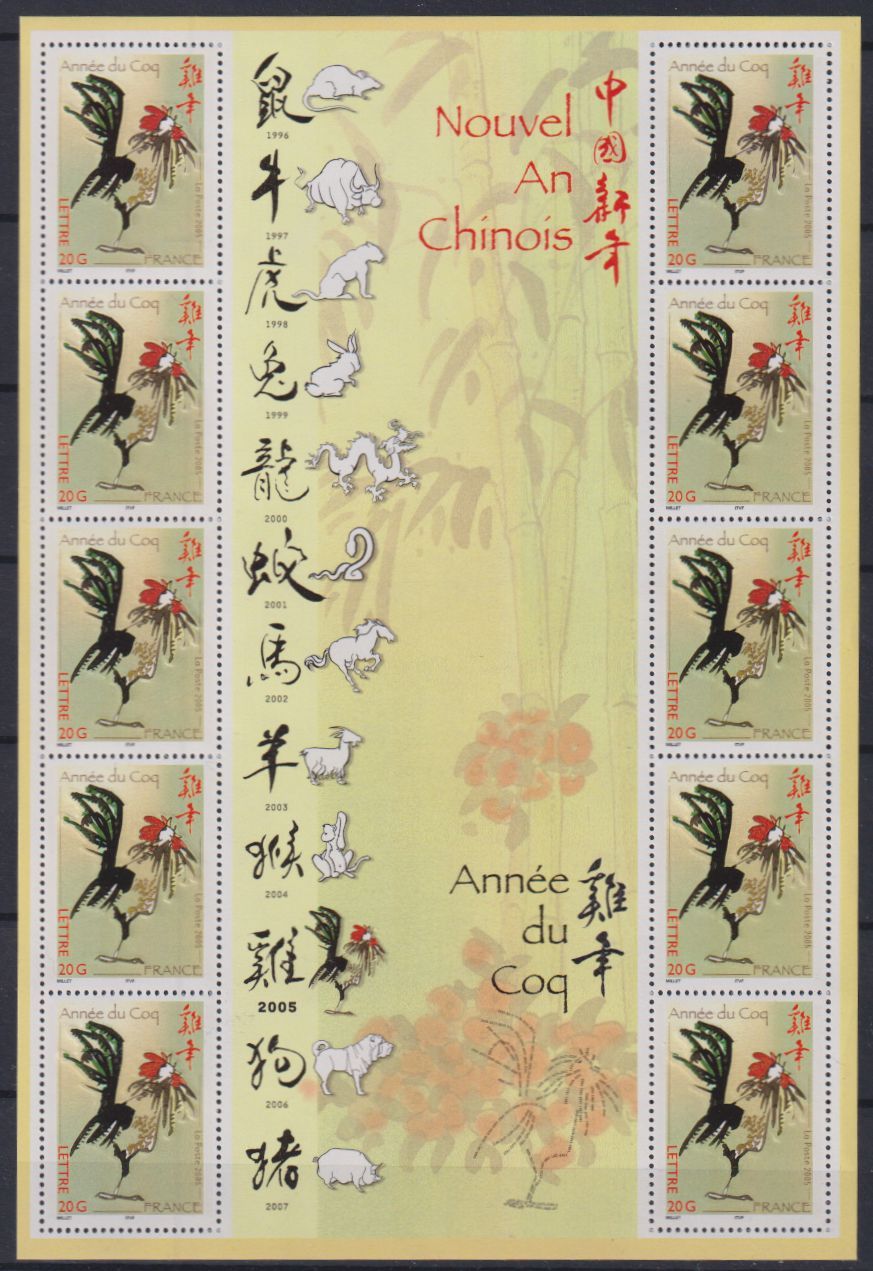 Année du Coq
雞年
La Poste 2005
LETTRE
20 G
FRANCE
MILLET
ITVF
Année du Coq
雞年
La Poste 2005
LETTRE
20 G
FRANCE
MILLET
ITVF
Année du Coq
雞年
La Poste 2005
LETTRE
20 G
FRANCE
MILLET
ITVF
Année du Coq
雞年
La Poste 2005
LETTRE
20 G
FRANCE
MILLET
ITVF
Année du Coq
雞年
La Poste 2005
LETTRE
20 G
FRANCE
MILLET
ITVF
鼠
1996
牛
1997
虎
1998
兔
1999
龍
2000
蛇
2001
馬
2002
羊
2003
猴
2004
雞
2005
狗
2006
猪
2007
Nouvel
An
Chinois
中國新年
Année
du
Coq
雞年
Année du Coq
雞年
La Poste 2005
LETTRE
20 G
FRANCE
MILLET
ITVF
Année du Coq
雞年
La Poste 2005
LETTRE
20 G
FRANCE
MILLET
ITVF
Année du Coq
雞年
La Poste 2005
LETTRE
20 G
FRANCE
MILLET
ITVF
Année du Coq
雞年
La Poste 2005
LETTRE
20 G
FRANCE
MILLET
ITVF
Année du Coq
雞年
La Poste 2005
LETTRE
20 G
FRANCE
MILLET
ITVF